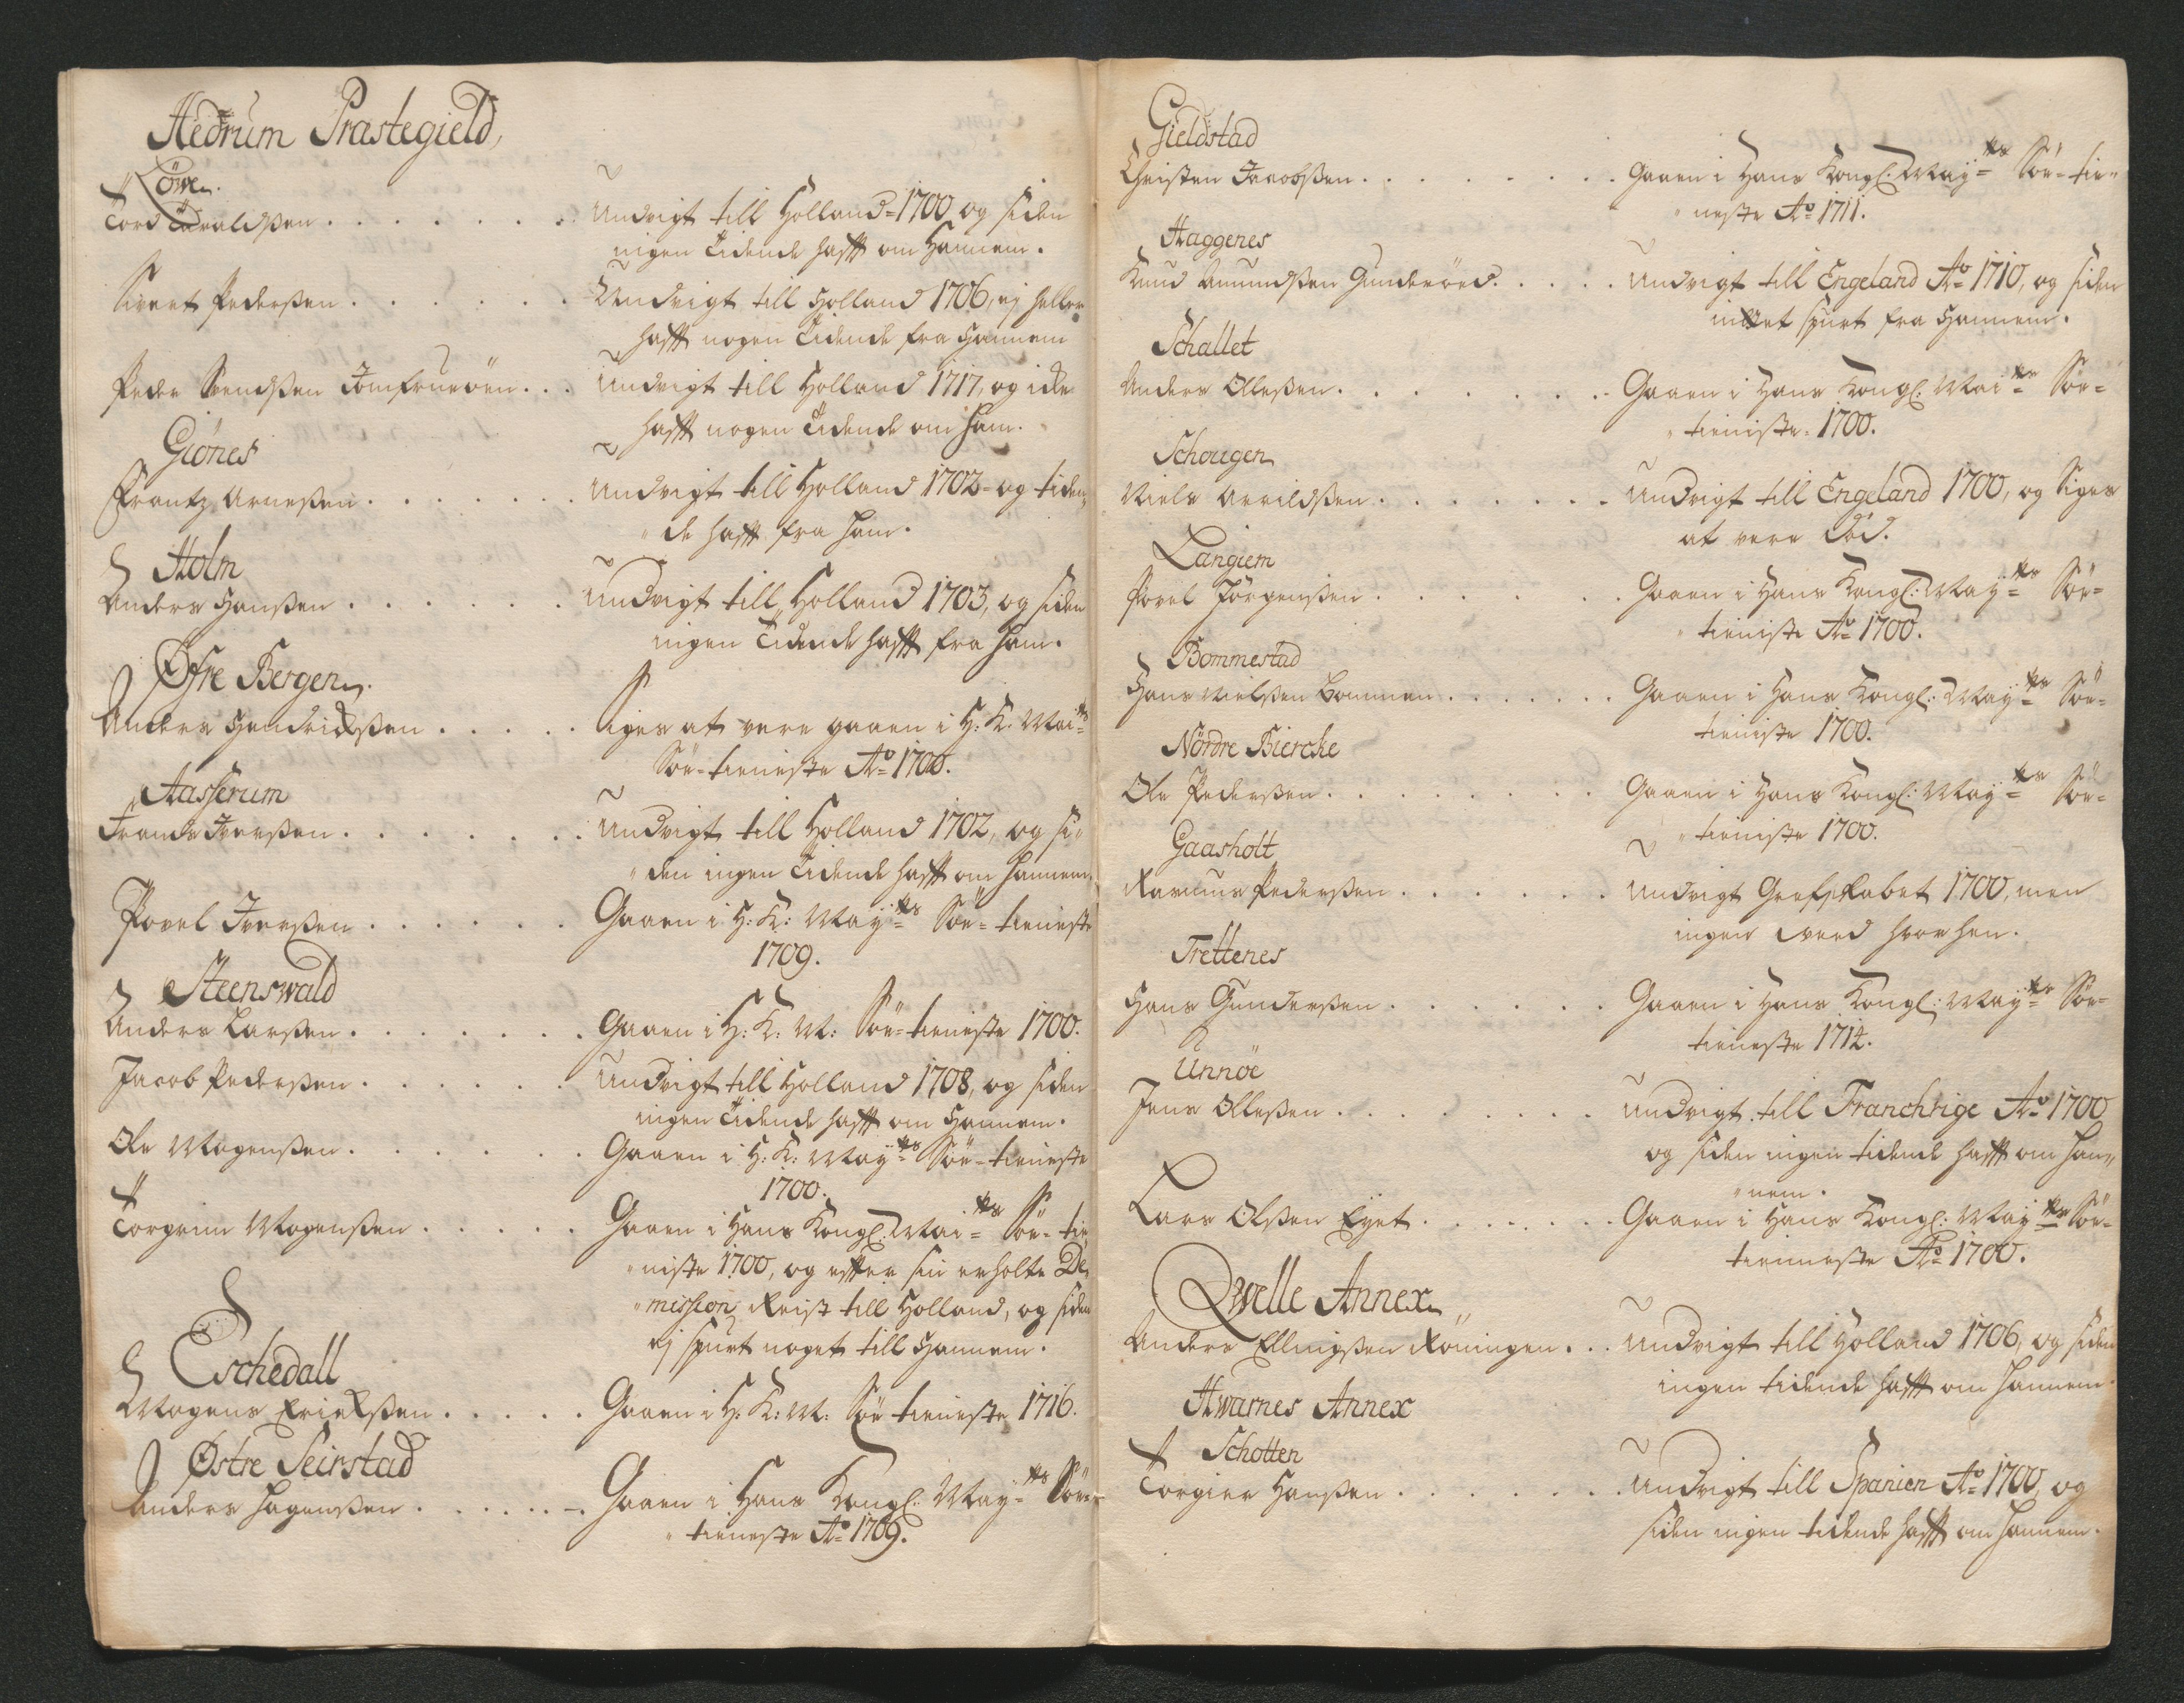 Hedrum Præstegield,
Löwe.
Tord Taraldsen . . . . . . . Undvigt till Holland 1700 og siden
ingen Tidende hafft om Hannem.
Sivert Pedersen . . . . . . Undvigt till Holland 1706, ej heller
hafft nogen Tidende fra Hannem
Peder Svendsen Jomfrueöen . . . Undvigt till Holland 1717, og icke
hafft nogen Tidende om ham.
Giönes
Frantz Arnesen . . . . . . . Undvigt till Holland 1702 og tiden„
„de hafft fra ham.
Holm
Anders Hansen . . . . . . Undvigt till Holland 1703, og siden
ingen Tidende hafft fra ham.
Øfre Bergen.
Anders Hendrichsen . . . . . Siges at vere gaaen i H: K. Mai=ts
Søe=tieneste Ao 1700.
Aasserum
Frands Iversen . . . . . . . Undvigt till Holland 1702, og si„
„den ingen Tidende hafft om hannem.
Povel Iversen . . . . . . Gaaen i H: K: May=ts Söe=tieneste
1709.
Steenswald
Anders Larsen . . . . . . . Gaaen i H: K: M: Söe=tieneste 1700.
Jacob Pedersen . . . . . . Undvigt till Holland 1708, og siden
ingen Tidende hafft om Hannem.
Ole Mogensen . . . . . . Gaaen i H: K: May=ts Söe=tieneste
1700.
Torgrim Mogensen . . . . . Gaaen i Hans Kongl: Mai=ts Söe=tie
„niste 1700, og effter sin erholte De„
„mission Reist till Holland, og siden
ej spurt noget till Hannem.
Eschedall
Mogens Erichsen . . . . . Gaaen i H: K: M: Söe tieneste 1716.
Østre Seirstad
Anders Hagensen . . . . . . Gaaen i Hans Kongl: May=ts Söe=
„tieneste Ao 1709.
Gieldstad
Christen Jacobsen . . . . . . . . Gaaen i Hans Kongl: May=ts Söe=tie„
„neste Ao 1711.
Haggenes
Knud Amundsen Gunderöed . . . . . Undvigt till Engeland Ao 1710, og siden
intet spurt fra Hannem.
Schallet
Anders Ollesen . . . . . . . Gaaen i Hans Kongl: Mai=ts Söe=
„tieniste 1700.
Schougen
Niels Arvildsen . . . . . . . Undvigt till Engeland 1700, og Siges
at vere död.
Langiem
Povel Jörgensen . . . . . . . Gaaen i Hans Kongl: May=ts Söe=
„tieniste Ao 1700.
Bommestad
Hans Nielsen Bommen . . . . . . Gaaen i Hans Kongl: May=ts Söe=
tieniste 1700.
Nördre Biercke
Ole Pedersen . . . . . . . . Gaaen i Hans Kongl: May=ts Söe=
„tieniste 1700.
Gaasholt
Rasmus Pedersen . . . . . . . Undvigt Grefskabet 1700, men
ingen veed hvor hen.
Trettenes
Hans Gundersen . . . . . . Gaaen i Hans Kongl: May=ts Söe=
tieneste 1714.
Unnöe
Jens Ollesen . . . . . . . . Undvigt till Franchrige Ao 1700
og siden ingen tidende hafft om han„
„nem.
Lars Olsen Eyet . . . . . . . Gaaen i Hans Kongl: May=ts Söe=
tienneste Ao 1700.
Qwelle Annex
Anders Ellingsen Röningen . . . Undvigt till Holland 1706, og siden
ingen tidende hafft om hannem.
Hwarnes Annex
Schotten
Torgier Hansen . . . . . . . Undvigt till Spanien Ao 1700, og
siden ingen tidende hafft om hannem.